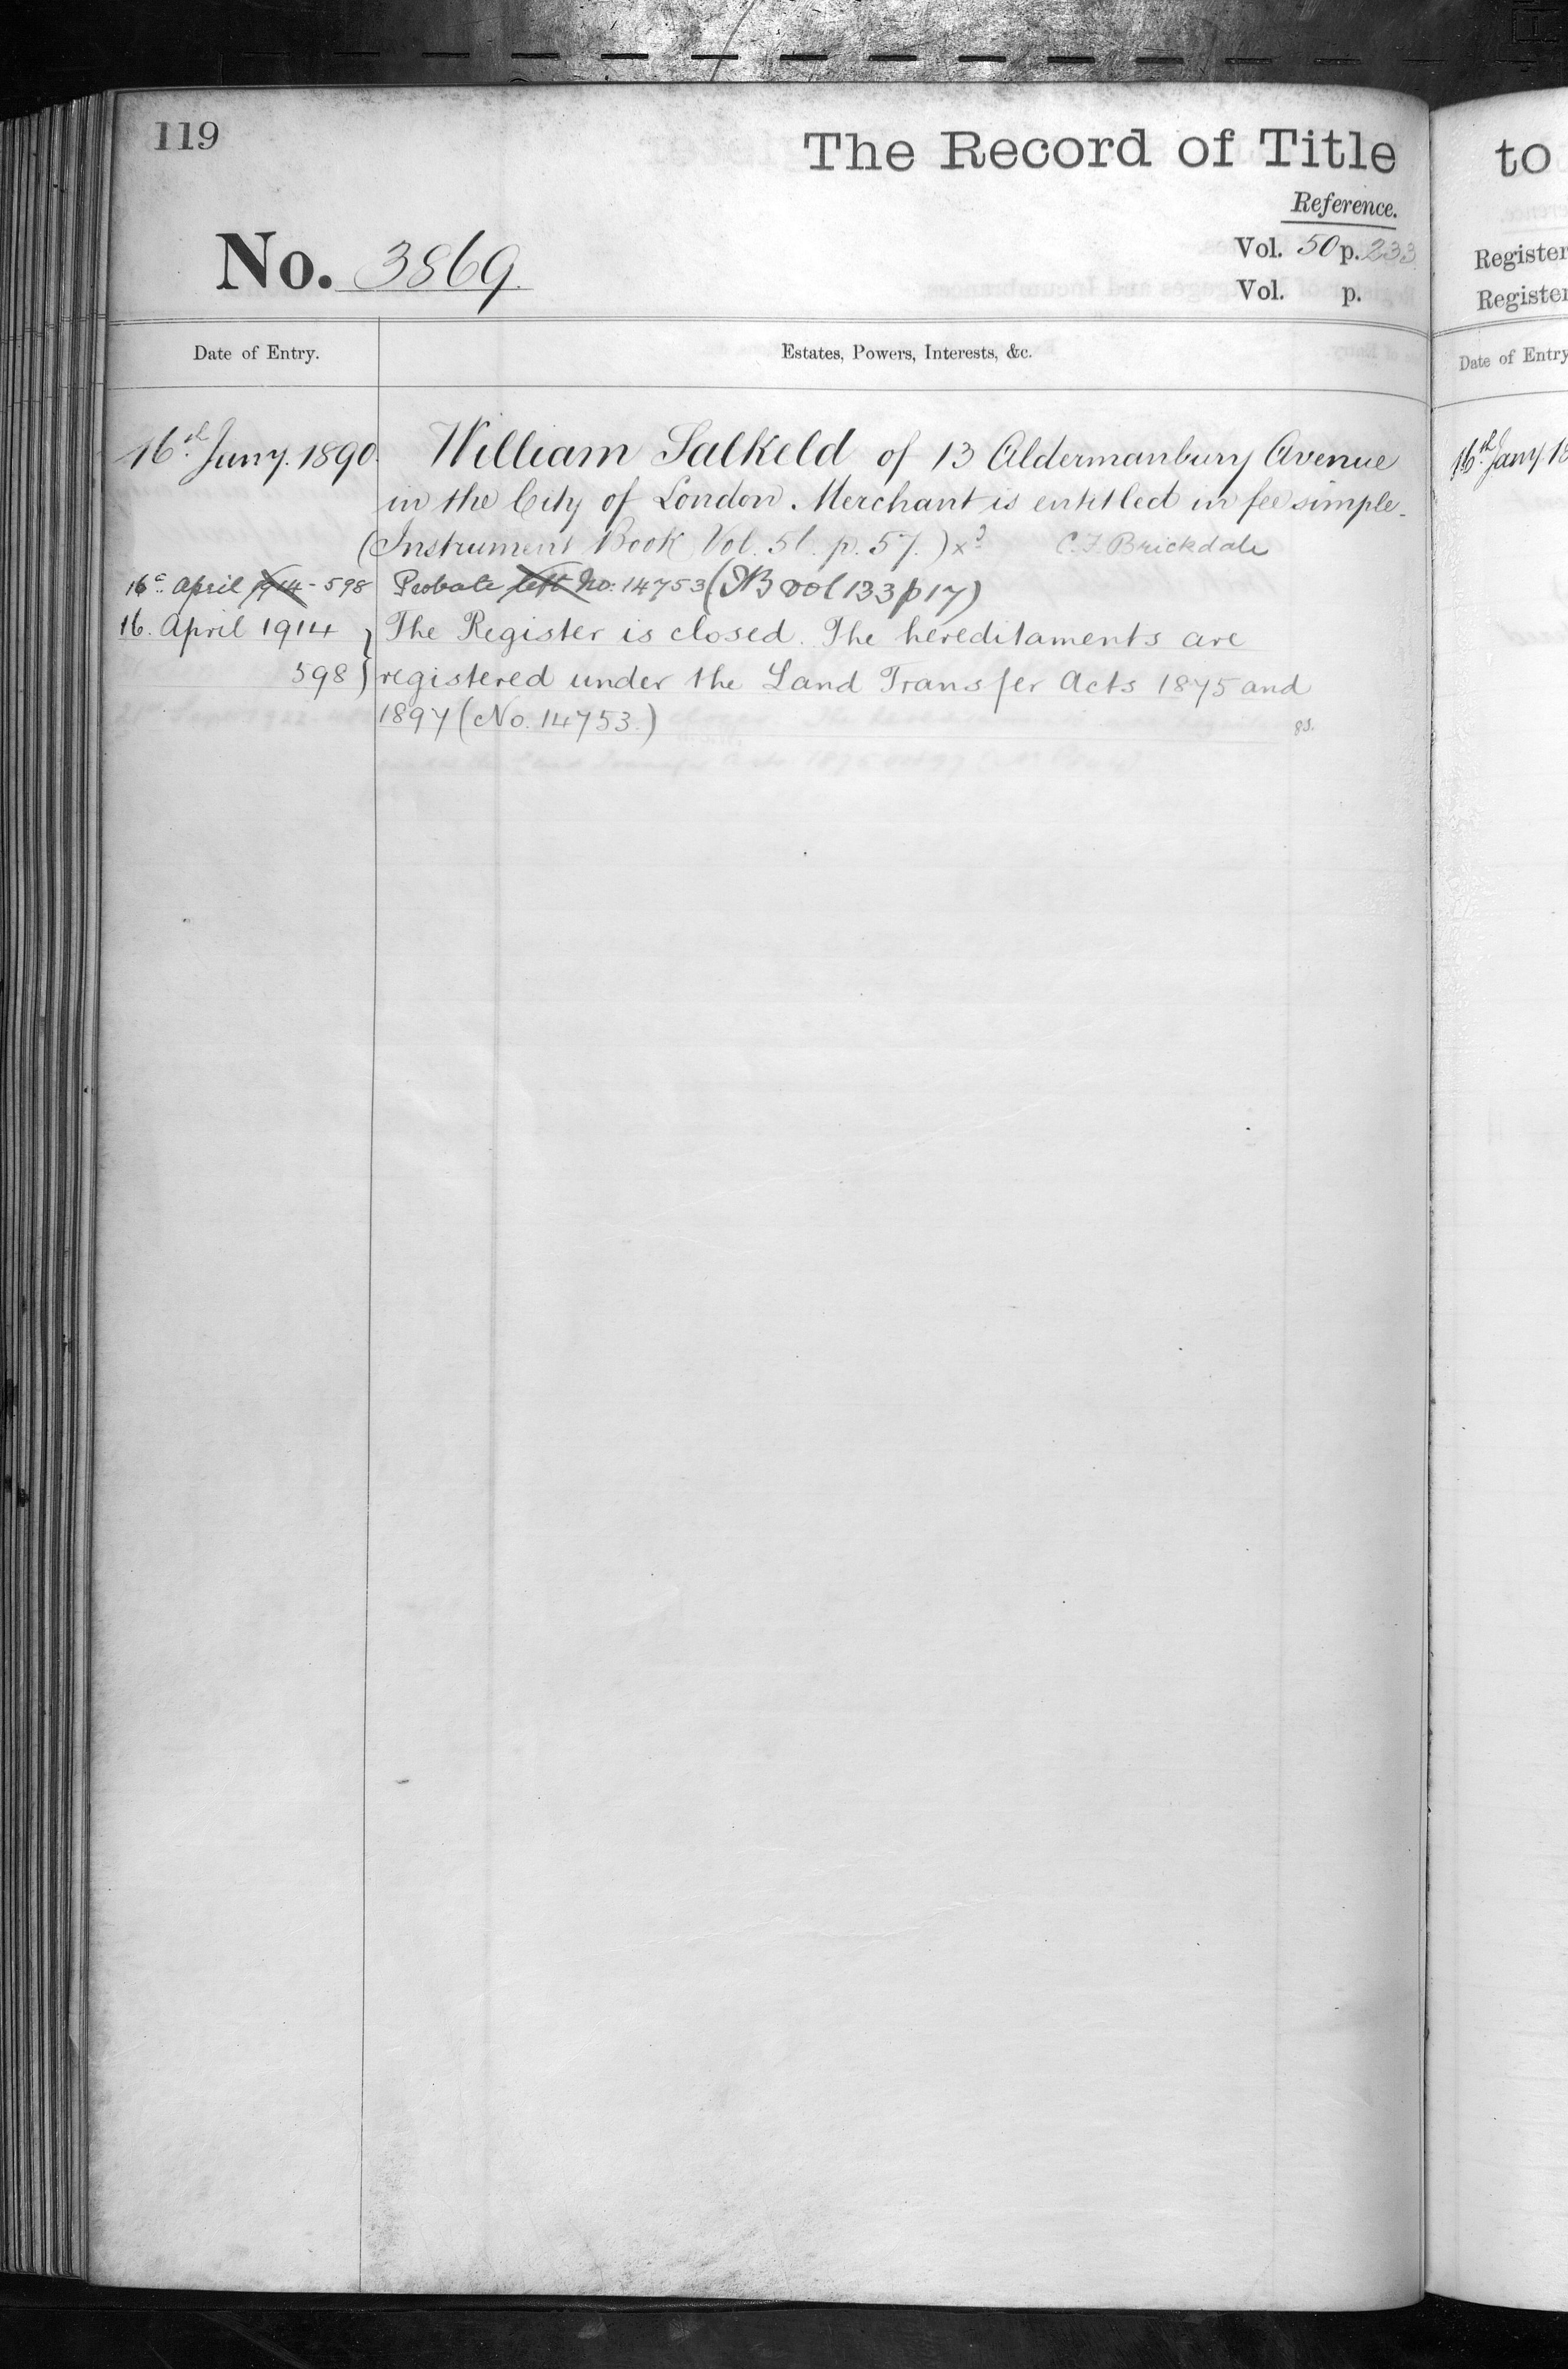 119
The Record of Title
Reference.
No. 3869.
Vol. 50 p. 233
Vol. p.
Date of Entry.
Estates, Powers, Interests, &c.
16th Jany. 1890. William Salkeld of 13 Aldermanbury Avenue
in the City of London. Merchant is entitled in fee simple.
(Instrument Book Vol. 51. p. 57.) xd C. F. Brickdale
16 April 1914 - 598 Probate left No. 14753 (Vol 133 p 17)
16. April 1914 The Register is closed. The hereditaments are
598 registered under the Land Transfer Acts 1875 and
1897 (No. 14753.)
to
Register
Register
Date of Entry
16th Jany. 18